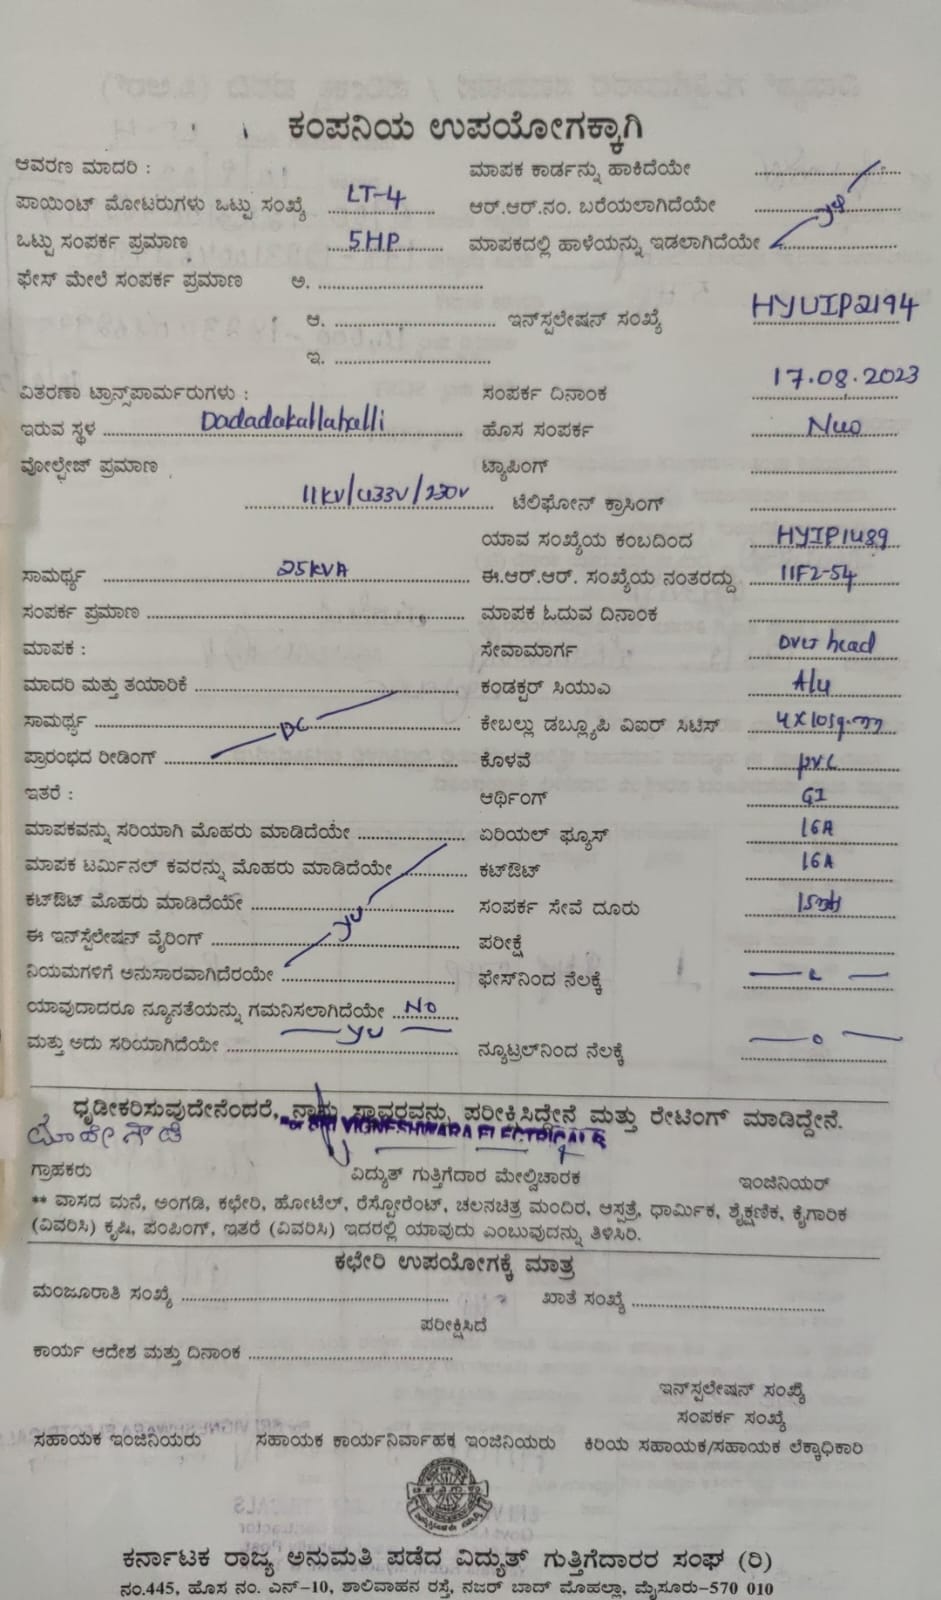 ಕಂಪನಿಯ ಉಪಯೋಗಕ್ಕಾಗಿ
ಆವರಣ ಮಾದರಿ : ಮಾಪಕ ಕಾರ್ಡನ್ನು ಹಾಕಿದೆಯೇ
ಪಾಯಿಂಟ್ ಮೋಟರುಗಳು ಒಟ್ಟು ಸಂಖ್ಯೆ LT-4 ಆರ್.ಆರ್.ನಂ. ಬರೆಯಲಾಗಿದೆಯೇ
ಒಟ್ಟು ಸಂಪರ್ಕ ಪ್ರಮಾಣ 5HP ಮಾಪಕದಲ್ಲಿ ಹಾಳೆಯನ್ನು ಇಡಲಾಗಿದೆಯೇ
ಫೇಸ್ ಮೇಲೆ ಸಂಪರ್ಕ ಪ್ರಮಾಣ ಅ.
ಆ. ಇನ್‌ಸ್ಪಲೇಷನ್ ಸಂಖ್ಯೆ HYUIP2194
ಇ.
ವಿತರಣಾ ಟ್ರಾನ್ಸ್‌ಪಾರ್ಮರುಗಳು : ಸಂಪರ್ಕ ದಿನಾಂಕ 17.08.2023
ಇರುವ ಸ್ಥಳ Dadadakallahalli ಹೊಸ ಸಂಪರ್ಕ
ವೋಲ್ಟೇಜ್ ಪ್ರಮಾಣ ಟ್ಯಾಪಿಂಗ್
11KV/433V/230V ಟೆಲಿಫೋನ್ ಕ್ರಾಸಿಂಗ್
ಯಾವ ಸಂಖ್ಯೆಯ ಕಂಬದಿಂದ HYIP1489
ಸಾಮರ್ಥ್ಯ 25KVA ಈ.ಆರ್.ಆರ್. ಸಂಖ್ಯೆಯ ನಂತರದ್ದು 11F2-54
ಸಂಪರ್ಕ ಪ್ರಮಾಣ ಮಾಪಕ ಓದುವ ದಿನಾಂಕ
ಮಾಪಕ : ಸೇವಾಮಾರ್ಗ Over head
ಮಾದರಿ ಮತ್ತು ತಯಾರಿಕೆ ಕಂಡಕ್ಟರ್ ಸಿಯುಎ Alu
ಸಾಮರ್ಥ್ಯ DC ಕೇಬಲ್ಲು ಡಬ್ಲ್ಯೂಪಿ ವಿಐರ್ ಸಿಟಿಸ್ 4X10sq.mm
ಪ್ರಾರಂಭದ ರೀಡಿಂಗ್ ಕೊಳವೆ pvc
ಇತರೆ : ಆರ್ಥಿಂಗ್ GI
ಮಾಪಕವನ್ನು ಸರಿಯಾಗಿ ಮೊಹರು ಮಾಡಿದೆಯೇ ಏರಿಯಲ್ ಫ್ಯೂಸ್ 16A
ಮಾಪಕ ಟರ್ಮಿನಲ್ ಕವರನ್ನು ಮೊಹರು ಮಾಡಿದೆಯೇ ಕಟ್‌ಔಟ್ 16A
ಕಟ್‌ಔಟ್ ಮೊಹರು ಮಾಡಿದೆಯೇ ಸಂಪರ್ಕ ಸೇವೆ ದೂರು
ಈ ಇನ್‌ಸ್ಪೆಲೇಷನ್ ವೈರಿಂಗ್ ಪರೀಕ್ಷೆ
ನಿಯಮಗಳಿಗೆ ಅನುಸಾರವಾಗಿದೆರಯೇ ಫೇಸ್‌ನಿಂದ ನೆಲಕ್ಕೆ
ಯಾವುದಾದರೂ ನ್ಯೂನತೆಯನ್ನು ಗಮನಿಸಲಾಗಿದೆಯೇ NO
ಮತ್ತು ಅದು ಸರಿಯಾಗಿದೆಯೇ ನ್ಯೂಟ್ರಲ್‌ನಿಂದ ನೆಲಕ್ಕೆ
ಧೃಡೀಕರಿಸುವುದೇನೆಂದರೆ, ನಾನು ಸ್ಥಾವರವನ್ನು ಪರೀಕ್ಷಿಸಿದ್ದೇನೆ ಮತ್ತು ರೇಟಿಂಗ್ ಮಾಡಿದ್ದೇನೆ.
SRI VIGNESHWARA ELECTRICALS
ಗ್ರಾಹಕರು ವಿದ್ಯುತ್ ಗುತ್ತಿಗೆದಾರ ಮೇಲ್ವಿಚಾರಕ ಇಂಜಿನಿಯರ್
** ವಾಸದ ಮನೆ, ಅಂಗಡಿ, ಕಛೇರಿ, ಹೋಟೆಲ್, ರೆಸ್ಟೋರೆಂಟ್, ಚಲನಚಿತ್ರ ಮಂದಿರ, ಆಸ್ಪತ್ರೆ, ಧಾರ್ಮಿಕ, ಶೈಕ್ಷಣಿಕ, ಕೈಗಾರಿಕ
(ವಿವರಿಸಿ) ಕೃಷಿ, ಪಂಪಿಂಗ್, ಇತರೆ (ವಿವರಿಸಿ) ಇದರಲ್ಲಿ ಯಾವುದು ಎಂಬುವುದನ್ನು ತಿಳಿಸಿರಿ.
ಕಛೇರಿ ಉಪಯೋಗಕ್ಕೆ ಮಾತ್ರ
ಮಂಜೂರಾತಿ ಸಂಖ್ಯೆ ಖಾತೆ ಸಂಖ್ಯೆ
ಪರೀಕ್ಷಿಸಿದೆ
ಕಾರ್ಯ ಆದೇಶ ಮತ್ತು ದಿನಾಂಕ
ಇನ್‌ಸ್ಪಲೇಷನ್ ಸಂಖ್ಯೆ
ಸಂಪರ್ಕ ಸಂಖ್ಯೆ
ಸಹಾಯಕ ಇಂಜಿನಿಯರು ಸಹಾಯಕ ಕಾರ್ಯನಿರ್ವಾಹಕ ಇಂಜಿನಿಯರು ಕಿರಿಯ ಸಹಾಯಕ/ಸಹಾಯಕ ಲೆಕ್ಕಾಧಿಕಾರಿ
ಕರ್ನಾಟಕ ರಾಜ್ಯ ಅನುಮತಿ ಪಡೆದ ವಿದ್ಯುತ್ ಗುತ್ತಿಗೆದಾರರ ಸಂಘ (ರಿ)
ನಂ.445, ಹೊಸ ನಂ. ಎನ್-10, ಶಾಲಿವಾಹನ ರಸ್ತೆ, ನಜರ್ ಬಾದ್ ಮೊಹಲ್ಲಾ, ಮೈಸೂರು-570 010